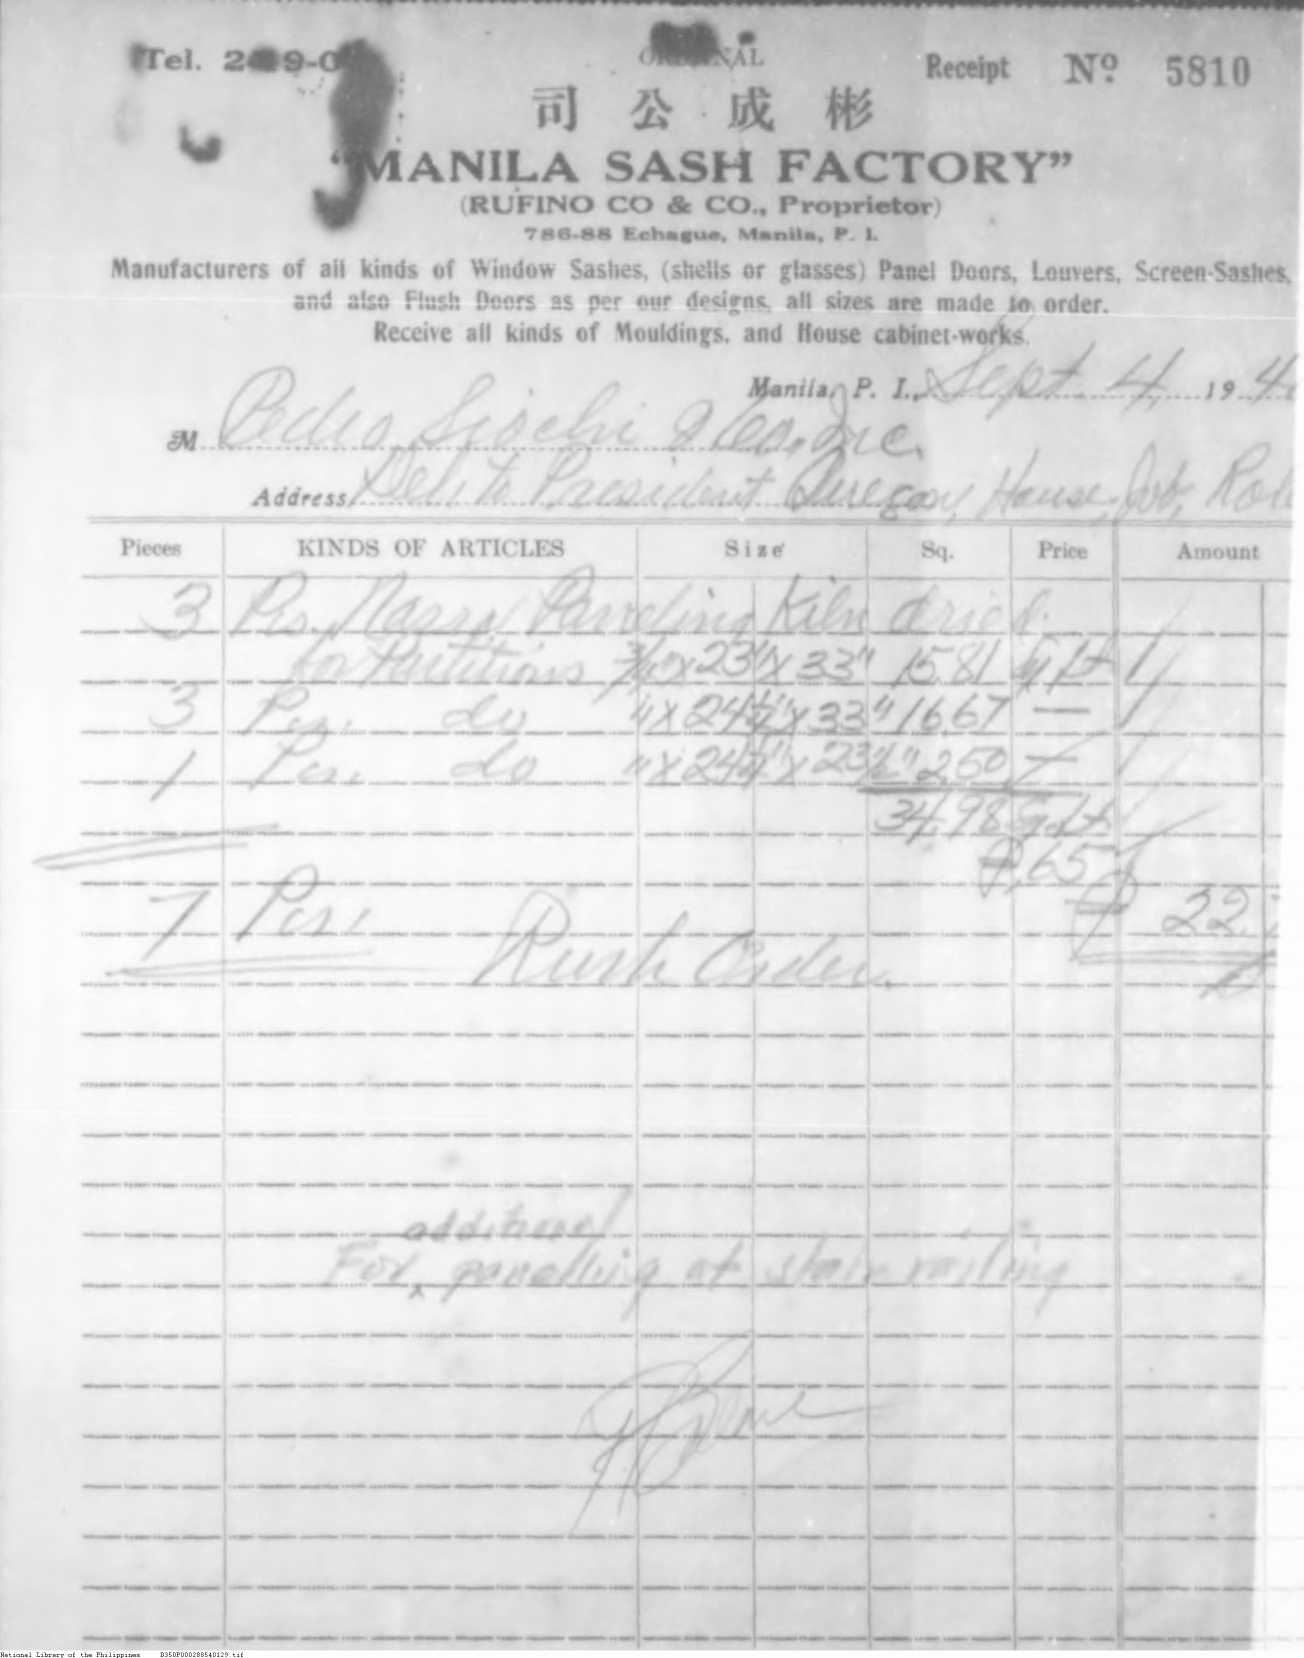 Tel. 2 9-0
ORIGINAL
Receipt Nº 5810
司公成彬
"MANILA SASH FACTORY"
(RUFINO CO & CO., Proprietor)
786-88 Echague, Manila, P. I.
Manufacturers of all kinds of Window Sashes, (shells or glasses) Panel Doors, Louvers, Screen-Sashes,
and also Flush Doors as per our designs, all sizes are made to order.
Receive all kinds of Mouldings, and House cabinet-works.
Manila, P. I., Sept. 4, 194
M Pedro Siochi & Co. Inc.
Address, Del. to President Quezon, House, Job,
Pieces KINDS OF ARTICLES Size Sq. Price Amount
3 Pcs. Narra Paneling Kiln dried.
for Partitions x 23 x 33" 15.81 Sq ft
3 Pcs. do " x 24½" x 33" 16.67 —
1 Pcs. do " x 24½" x 23½" 2.50 —
34.98 Sq. ft
₱.65
7 Pcs. ₱ 22.
Rush Order.
additional
For panelling at stair railing
National Library of the Philippines B350P000288540129.tif